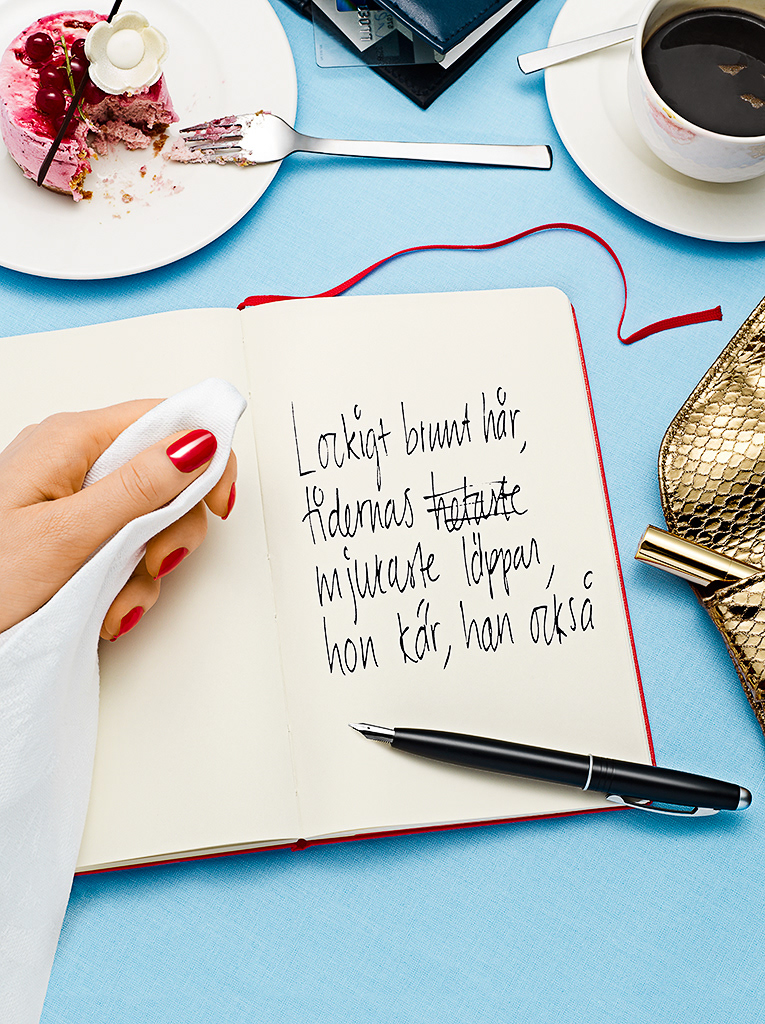 Lockigt brunt hår,
tidernas hetaste
mjukaste läppar,
hon kär, han också